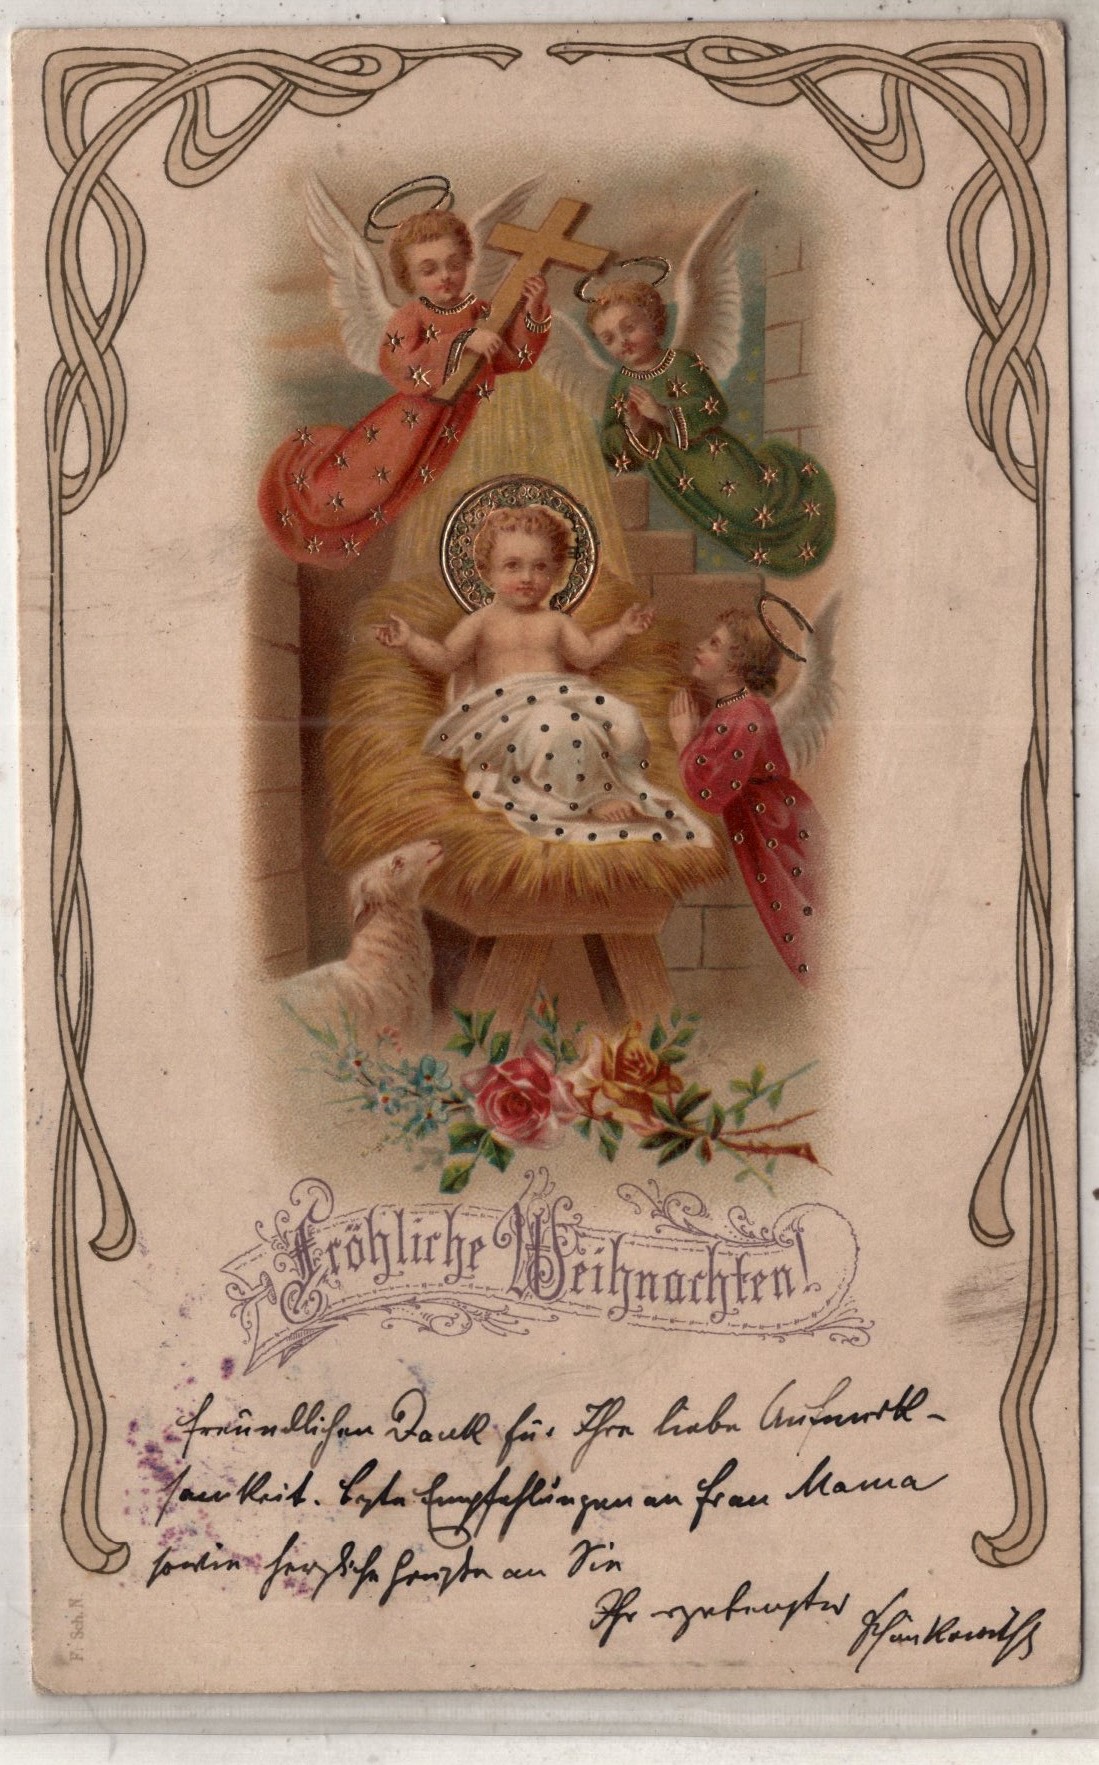 Fröhliche Weihnachten!
freundlichen Dank für Ihre liebe Aufmerk-
samkeit. beste Empfehlungen an Frau Mama
sowie herzliche Grüsse an Sie
Ihr ergebenster
F. Sch. N.